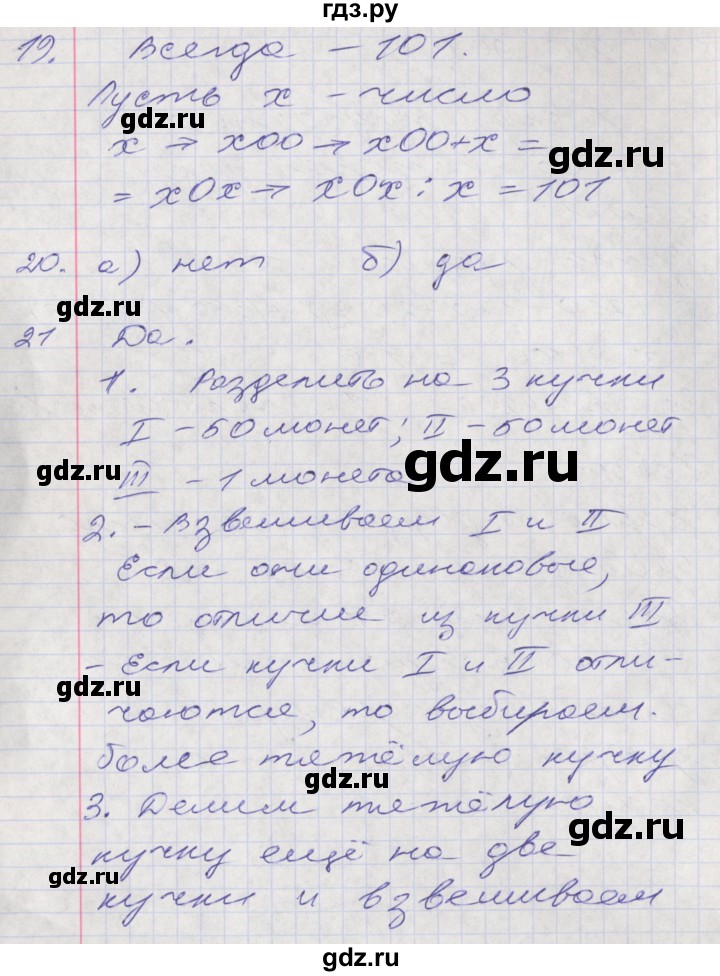 гдз.ру
19. Всегда – 101.
Пусть x – число
gdz.ru
x → x00 → x00+x =
gdz.ru
= x0x → x0x : x = 101
20. а) нет б) да
gdz.ru
gdz.ru
21 Да.
1. Разделить на 3 кучки
I – 50 монет; II – 50 монет
gdz.ru
III – 1 монета
gdz.ru
2. – Взвешиваем I и II
gdz.ru
Если они одинаковые,
то отличие из кучки III
– Если кучки I и II отли-
gdz.ru
чаются, то выбираем.
более тяжёлую кучку
gdz.ru
3. Делим тяжёлую
gdz.ru
кучку ещё на две
gdz.ru
кучки и взвешиваем
gdz.ru